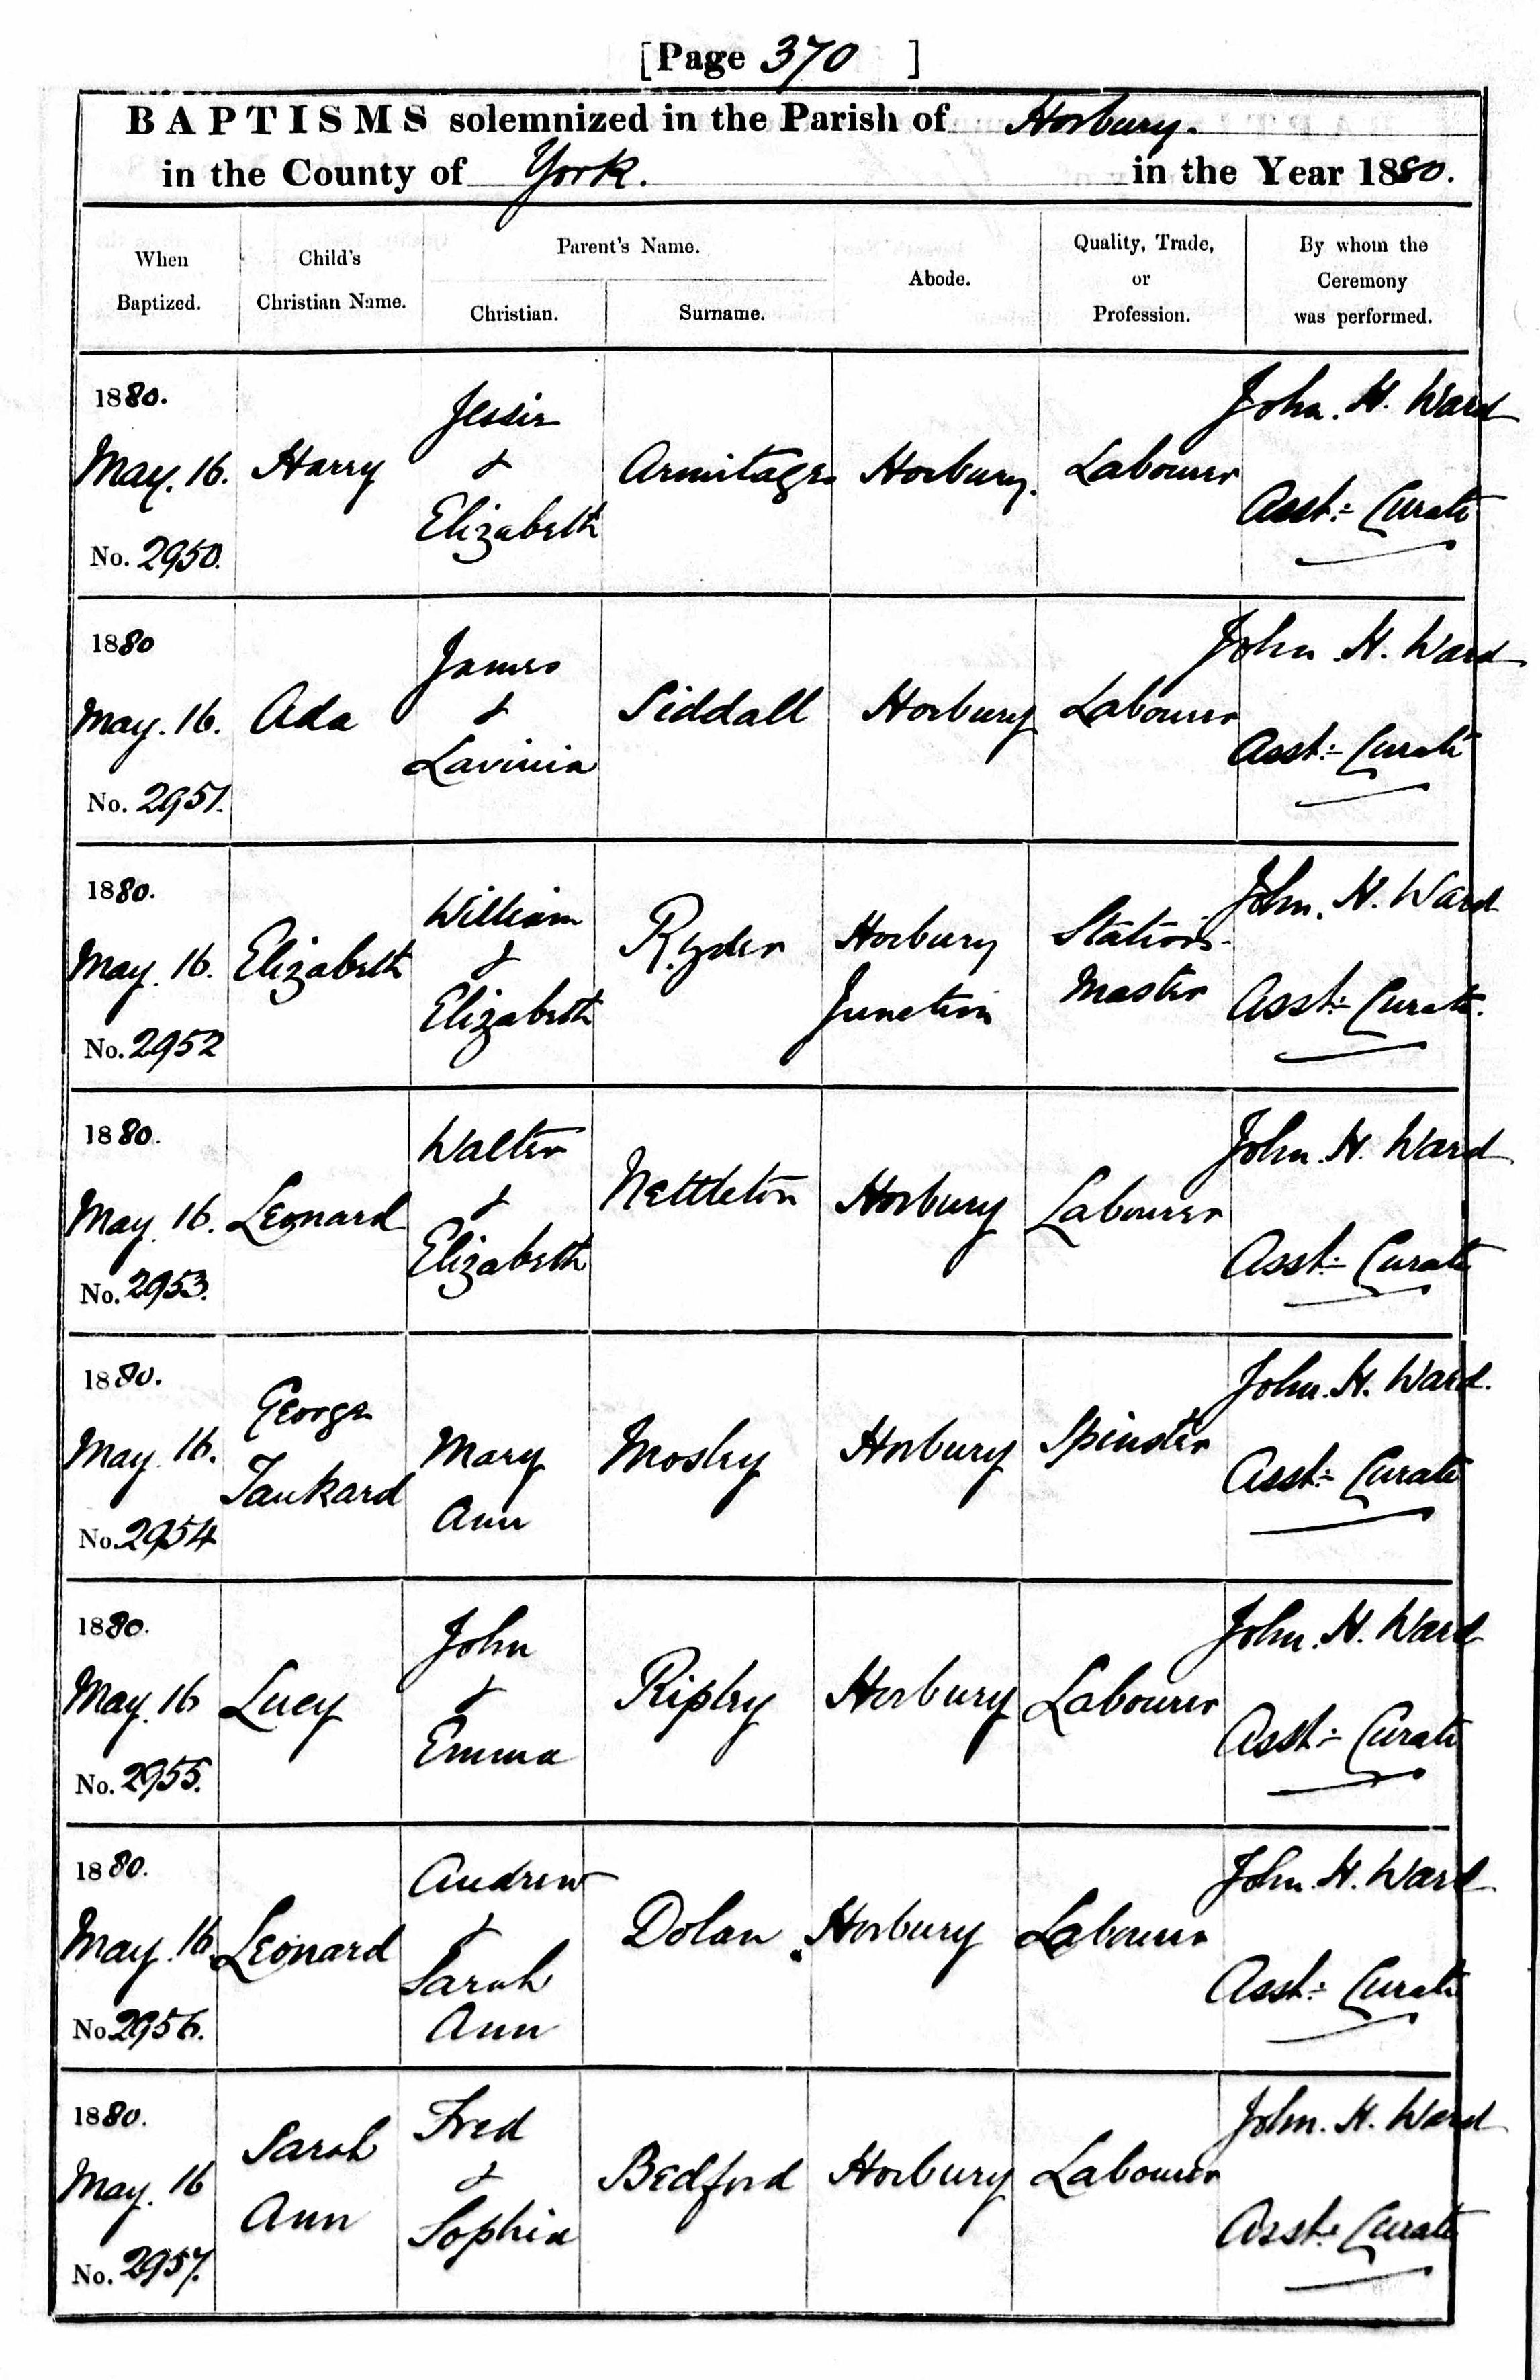 [Page 370 ]
BAPTISMS solemnized in the Parish of Horbury.
in the County of York. in the Year 1880.
When Baptized.
Child's Christian Name.
Parent's Name.
Christian.
Surname.
Abode.
Quality, Trade, or Profession.
By whom the Ceremony was performed.
1880.
May. 16.
No. 2950.
Harry
Jessie
&
Elizabeth
Armitage
Horbury.
Labourer
John. H. Ward
Asst: Curate
1880
May. 16.
No. 2951.
Ada
James
&
Lavinia
Siddall
Horbury
Labourer
John. H. Ward
Asst: Curate
1880.
May. 16.
No. 2952
Elizabeth
William
&
Elizabeth
Ryder
Horbury
Junction
Station-
Master
John. H. Ward
Asst: Curate.
1880.
May. 16.
No. 2953.
Leonard
Walter
&
Elizabeth
Nettleton
Horbury
Labourer
John. H. Ward
Asst: Curate
1880.
May. 16.
No. 2954
George
Tankard
Mary
Ann
Mosley
Horbury
Spinster
John. H. Ward.
Asst: Curate
1880.
May. 16
No. 2955.
Lucy
John
&
Emma
Ripley
Horbury
Labourer
John. H. Ward
Asst: Curate
1880.
May. 16
No. 2956.
Leonard
Andrew
&
Sarah
Ann
Dolan
Horbury
Labourer
John. H. Ward
Asst: Curate
1880.
May. 16
No. 2957.
Sarah
Ann
Fred
&
Sophia
Bedford
Horbury
Labourer
John. H. Ward
Asst: Curate